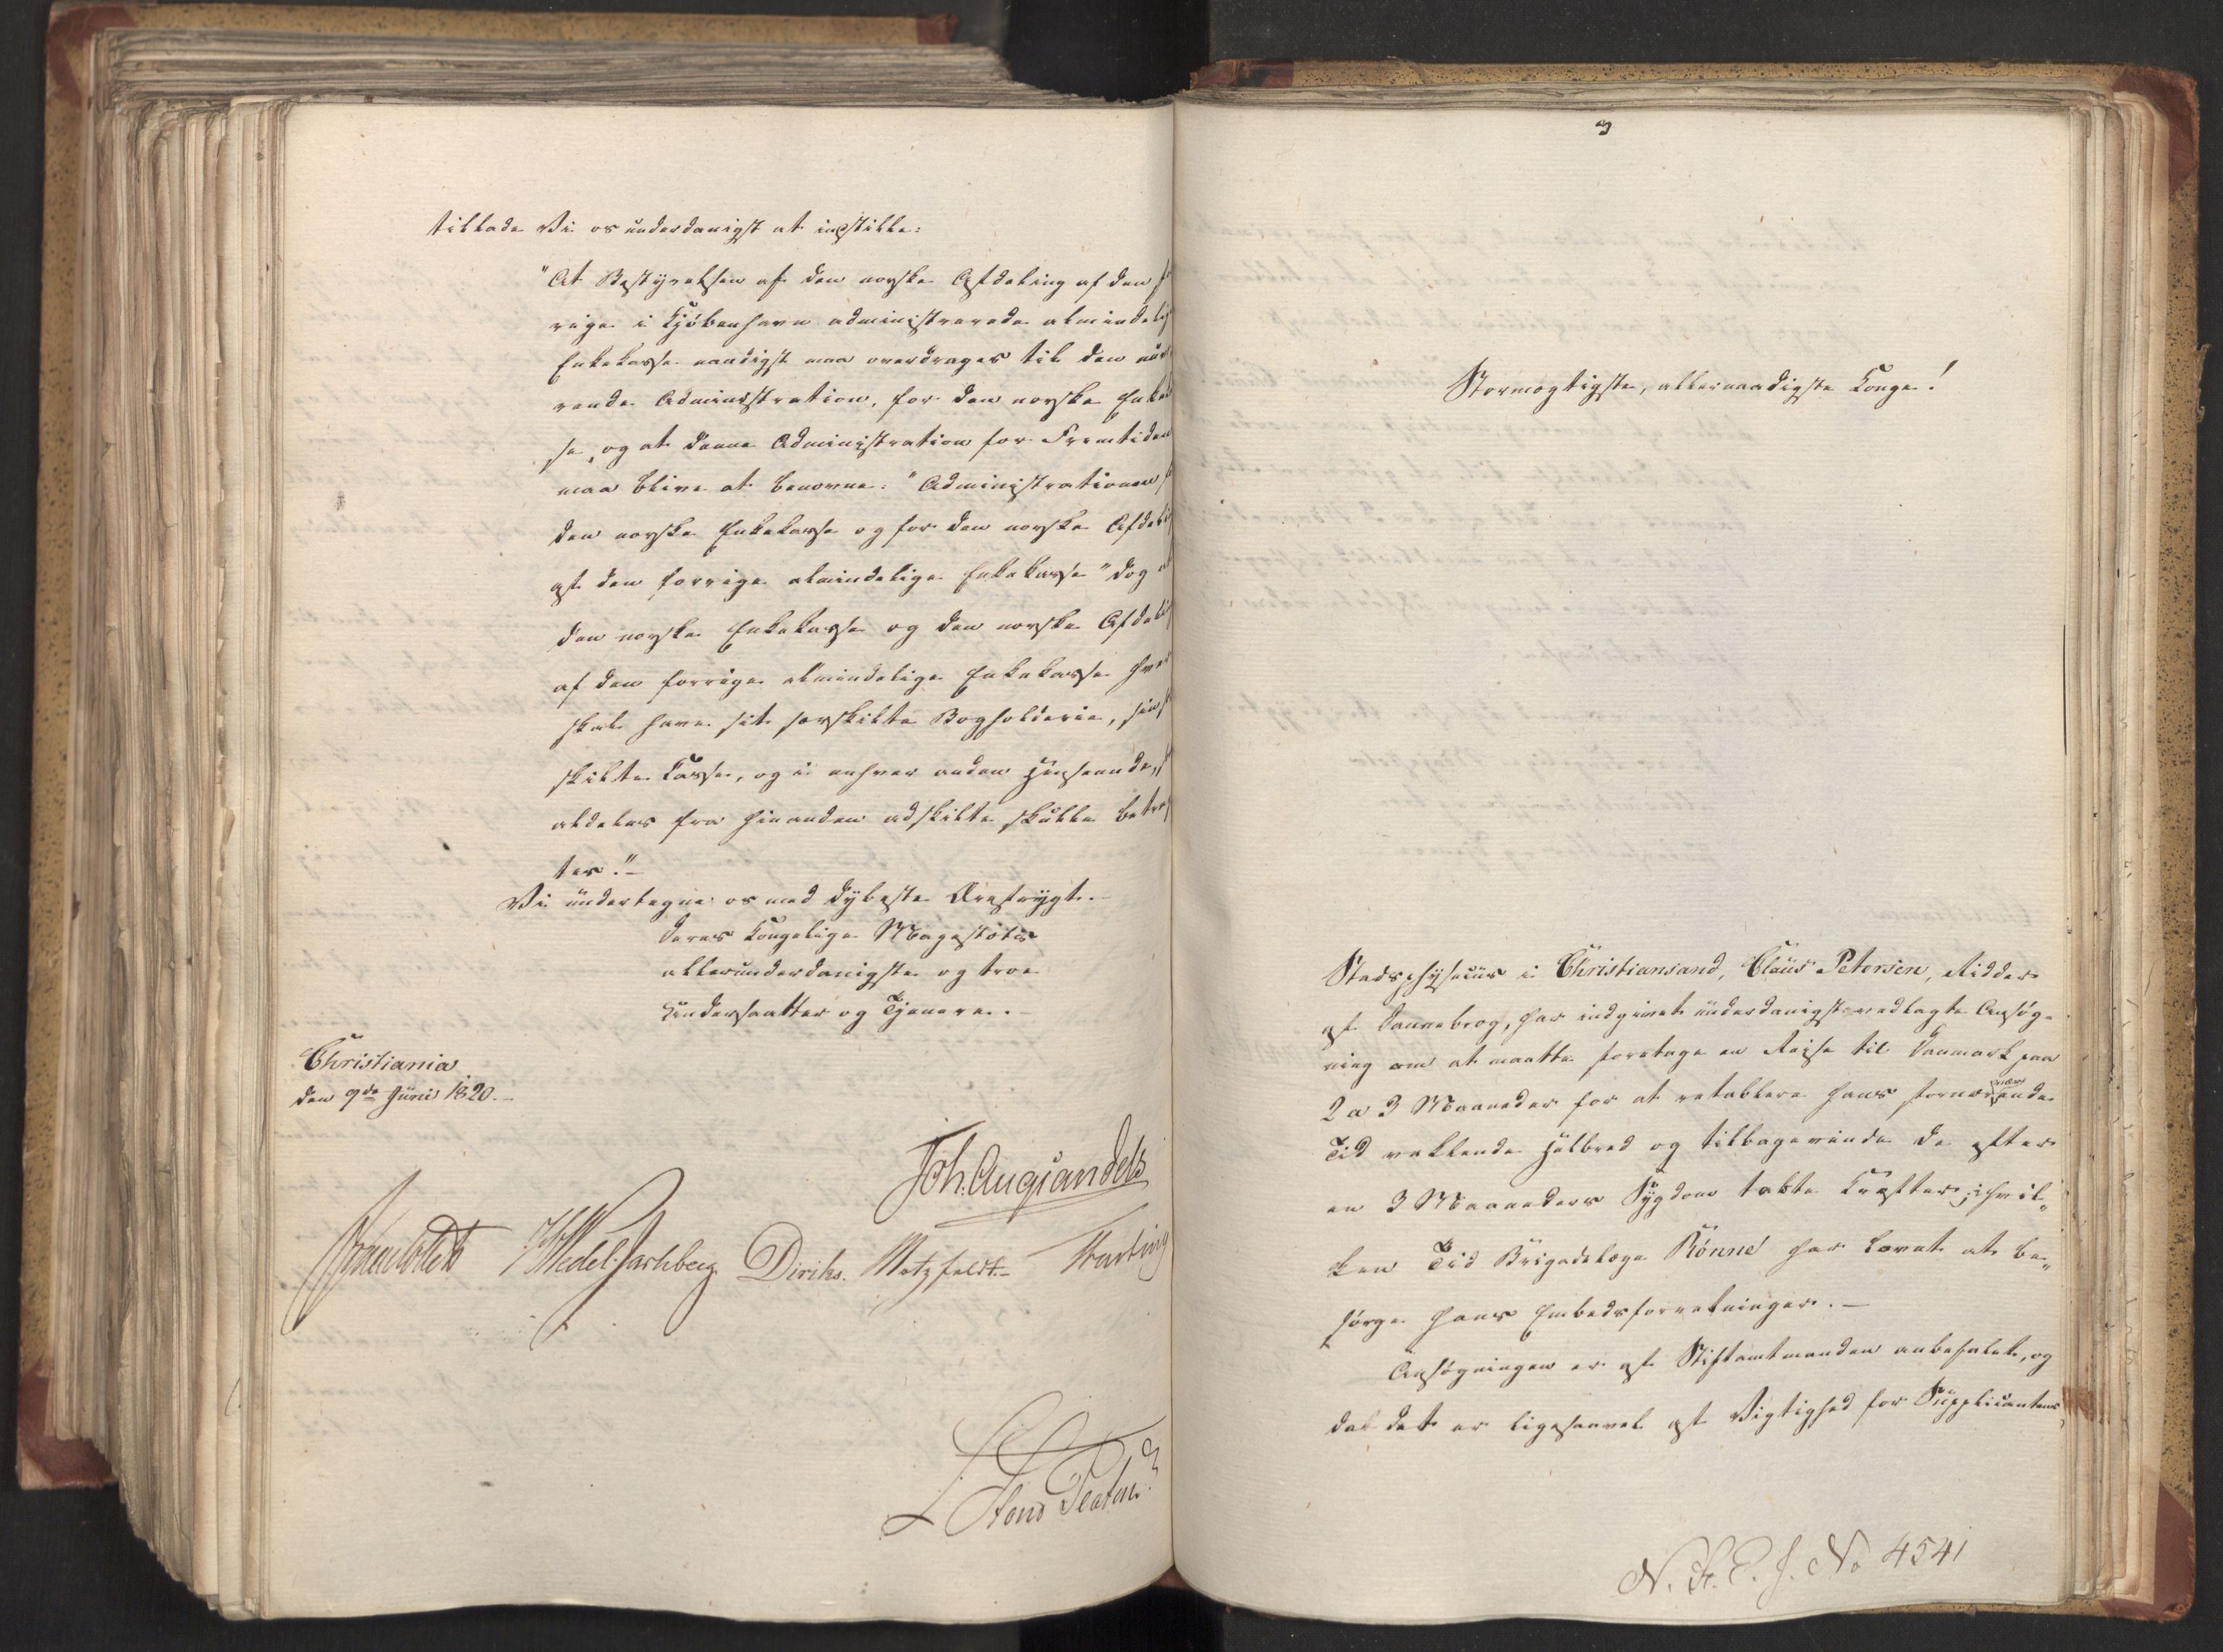 tillade Vi os underdanigst at indstille:
"At Bestyrelsen af den norske Afdeling af den f
rige i Kjöbenhavn administrerede almindelig
Enkekasse naadigst maa overdrages til den nuv
rende Administration, for den norske Enkek
se, og at denne Administration for Fremtiden
maa blive at benævne: "Administrationen f
den norske Enkekasse og for den norske Afdeli
af den forrige almindelige Enkekasse" dog at
den norske Enkekasse og den norske Afdeli
af den forrige almindelige Enkekasse hver
skal have sit særskilte Bogholderie, sin s
skilte Casse, og i enhver anden Henseende,
aldeles fra hinanden adskilte skulle betra
tes."-
Vi undertegne os med dybeste Ærefrygt.
Deres Kongelige Magestæts
allerunderdanigste og troe
Undersaatter og Tjenere.
Christiania
den 9de Juni 1820.
Joh. Aug Sandels
Sommerhielm H Wedel-Jarlsberg Diriks. Motzfeldt. Fasting
L
von Platen
Stormægtigste, allernaadigste Konge!
Stadsphysicus i Christiansand, Claus Petersen, Ridder
af Dannebrog, har indgivet underdanigst vedlagte Ansøg-
ning om at maatte foretage en Reise til Danmark paa
2 a 3 Maaneder for at retablere hans fornærværende
Tid vaklende Helbred og tilbagevinde de efter
en 3 Maaneders Sygdom tabte Kræfter; i hvil-
ken Tid Brigadelæge Rönne har lovet at be-
sørge hans Embedsforretninger.-
Ansøgningen er af Stiftamtmanden anbefalet, og
da det er ligesaavel af Vigtighed for Supplicanten
N. R. E. J. No 4541